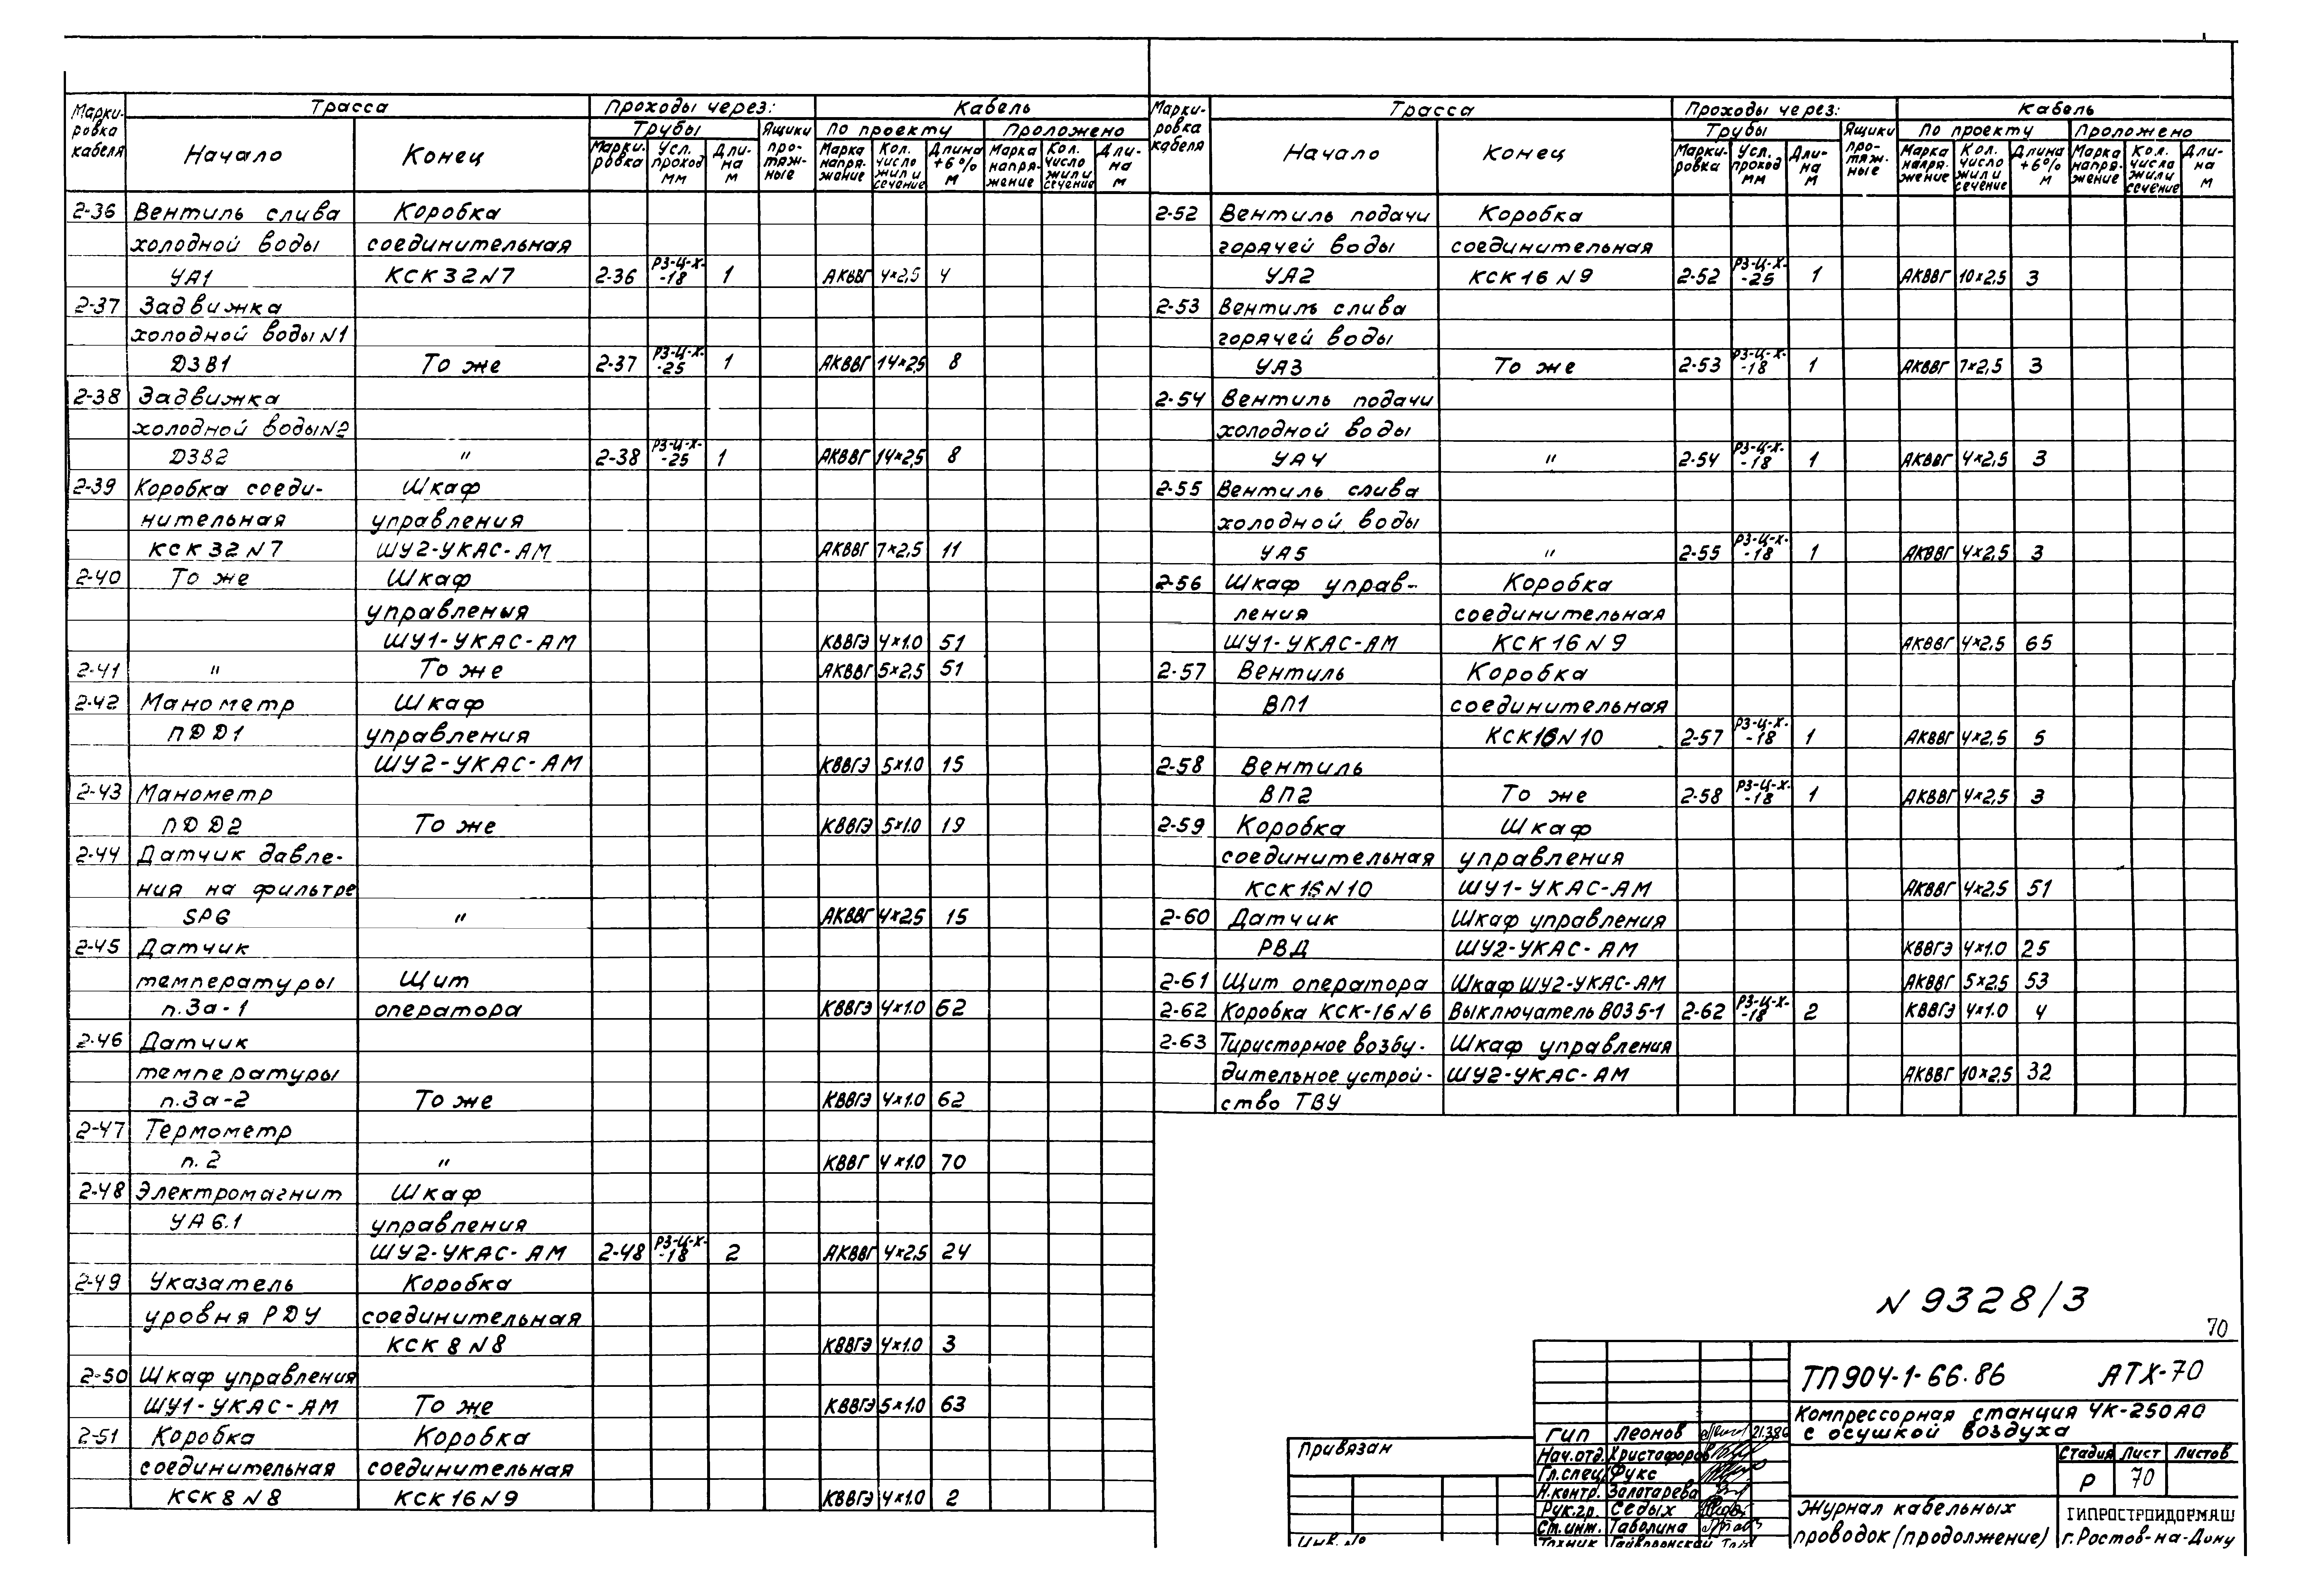 Марки-ровка кабеля Трасса Проходы через: Кабель
Начало Конец Трубы Ящики про-тяж-ные По проекту Проложено
Марки-ровка Усл. проход мм Дли-на м Марка напря-жение Кол. число жил и сечение Длина +6% м Марка напря-жение Кол. число жил и сечение Дли-на м
2-36 Вентиль слива Коробка
холодной воды соединительная
УА1 КСК32N7 2-36 РЗ-Ц-Х--18 1 АКВВГ 4×2,5 4
2-37 Задвижка
холодной воды N1
ДЗВ1 То же 2-37 РЗ-Ц-Х--25 1 АКВВГ 14×2,5 8
2-38 Задвижка
холодной воды N2
ДЗВ2 " 2-38 РЗ-Ц-Х--25 1 АКВВГ 14×2,5 8
2-39 Коробка соеди- Шкаф
нительная управления
КСК32N7 ШУ2-УКАС-АМ АКВВГ 7×2,5 11
2-40 То же Шкаф
управления
ШУ1-УКАС-АМ КВВГЭ 4×1.0 51
2-41 " То же АКВВГ 5×2,5 51
2-42 Манометр Шкаф
ПДД1 управления
ШУ2-УКАС-АМ КВВГЭ 5×1.0 15
2-43 Манометр
ПДД2 То же КВВГЭ 5×1.0 19
2-44 Датчик давле-
ния на фильтре
SP6 " АКВВГ 4×2,5 15
2-45 Датчик
температуры Щит
п.3а-1 оператора КВВГЭ 4×1.0 62
2-46 Датчик
температуры
п.3а-2 То же КВВГЭ 4×1.0 62
2-47 Термометр
п. 2 " КВВГ 4×1.0 70
2-48 Электромагнит Шкаф
УА6.1 управления
ШУ2-УКАС-АМ 2-48 РЗ-Ц-Х--18 2 АКВВГ 4×2,5 24
2-49 Указатель Коробка
уровня РДУ соединительная
КСК8N8 КВВГЭ 4×1.0 3
2-50 Шкаф управления
ШУ1-УКАС-АМ То же КВВГЭ 5×1.0 63
2-51 Коробка Коробка
соединительная соединительная
КСК8N8 КСК16N9 КВВГЭ 4×1.0 2
Марки-ровка кабеля Трасса Проходы через: Кабель
Начало Конец Трубы Ящики про-тяж-ные По проекту Проложено
Марки-ровка Усл. проход мм Дли-на м Марка напря-жение Кол. число жил и сечение Длина +6% м Марка напря-жение Кол. число жил и сечение Дли-на м
2-52 Вентиль подачи Коробка
горячей воды соединительная
УА2 КСК16N9 2-52 РЗ-Ц-Х--25 1 АКВВГ 10×2,5 3
2-53 Вентиль слива
горячей воды
УА3 То же 2-53 РЗ-Ц-Х--18 1 АКВВГ 7×2,5 3
2-54 Вентиль подачи
холодной воды
УА4 " 2-54 РЗ-Ц-Х--18 1 АКВВГ 4×2,5 3
2-55 Вентиль слива
холодной воды
УА5 " 2-55 РЗ-Ц-Х--18 1 АКВВГ 4×2,5 3
2-56 Шкаф управ- Коробка
ления соединительная
ШУ1-УКАС-АМ КСК16N9 АКВВГ 4×2,5 65
2-57 Вентиль Коробка
ВП1 соединительная
КСК16N10 2-57 РЗ-Ц-Х--18 1 АКВВГ 4×2,5 5
2-58 Вентиль
ВП2 То же 2-58 РЗ-Ц-Х--18 1 АКВВГ 4×2,5 3
2-59 Коробка Шкаф
соединительная управления
КСК16N10 ШУ1-УКАС-АМ АКВВГ 4×2,5 51
2-60 Датчик Шкаф управления
РВД ШУ2-УКАС-АМ КВВГЭ 4×1.0 25
2-61 Щит оператора Шкаф ШУ2-УКАС-АМ АКВВГ 5×2,5 53
2-62 Коробка КСК-16N6 Выключатель ВО35-1 2-62 РЗ-Ц-Х--18 2 КВВГЭ 4×1.0 4
2-63 Тиристорное возбу- Шкаф управления
дительное устрой- ШУ2-УКАС-АМ АКВВГ 10×2,5 32
ство ТВУ
N 9328/3
70
ТП904-1-66.86 АТХ-70
Компрессорная станция 4К-250АО
с осушкой воздуха
Стадия Лист Листов
Р 70
Журнал кабельных
проводок (продолжение)
ГИПРОСТРОЙДОРМАШ
г.Ростов-на-Дону
Привязан
Инв.№
ГИП Леонов
Нач.отд. Христофоров
Гл.спец. Фукс
Н.контр. Золотарева
Рук.гр. Седых
Ст.инж. Таволина
Техник